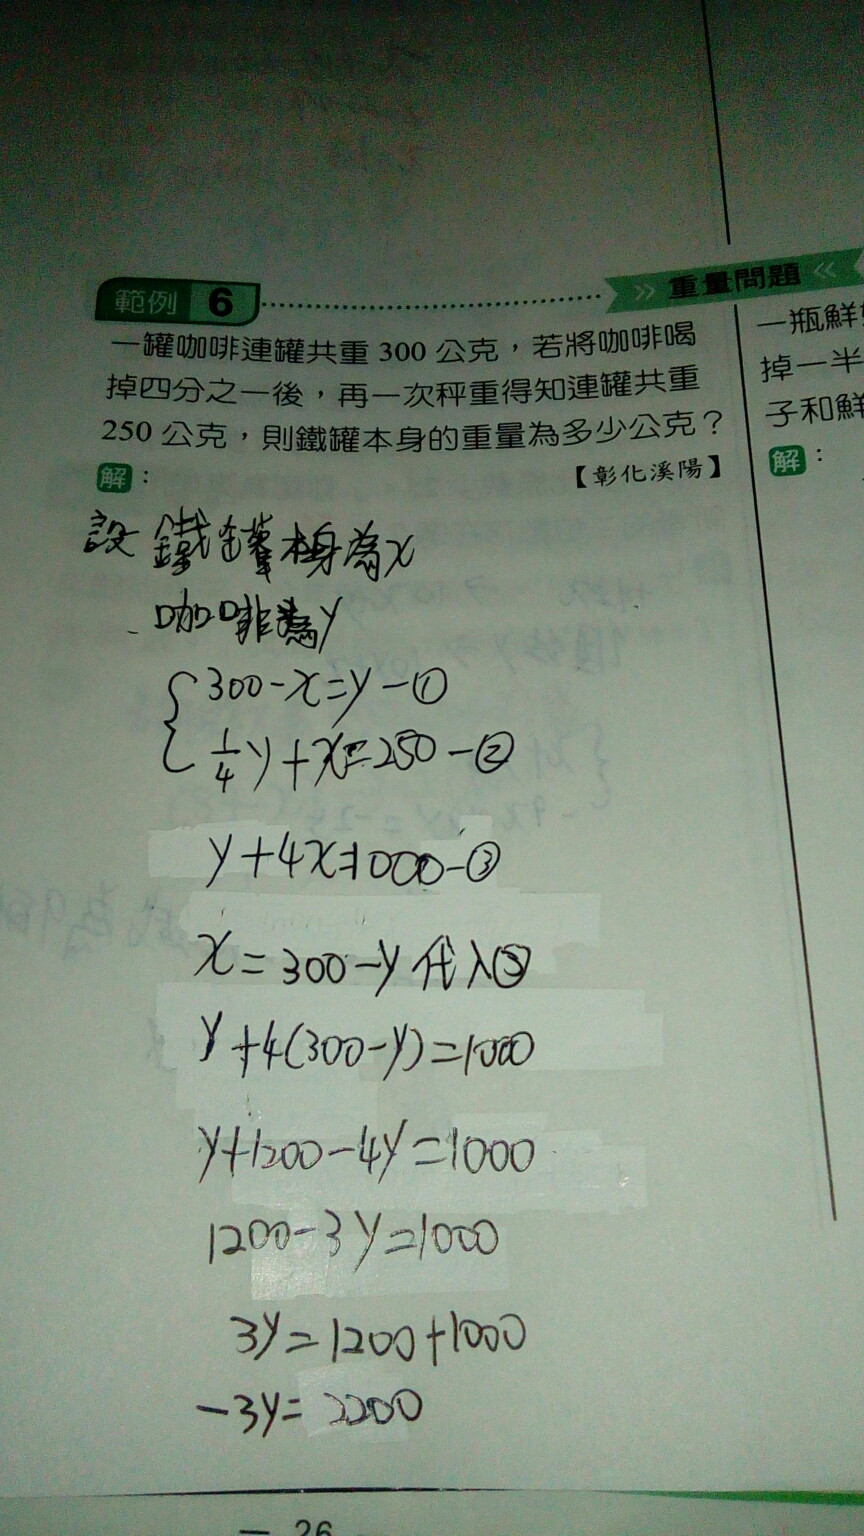 範例 6
» 重量問題 «
一罐咖啡連罐共重 300 公克，若將咖啡喝
掉四分之一後，再一次秤重得知連罐共重
250 公克，則鐵罐本身的重量為多少公克？
【彰化溪陽】
解：
設 鐵罐本身為x
咖啡為y
300-x=y-①
1/4y+x=250-②
y+4x=1000-③
x=300-y 代入③
y+4(300-y)=1000
y+1200-4y=1000
1200-3y=1000
3y=1200+1000
-3y=2200
一瓶鮮
掉一半
子和鮮
解：
— 26